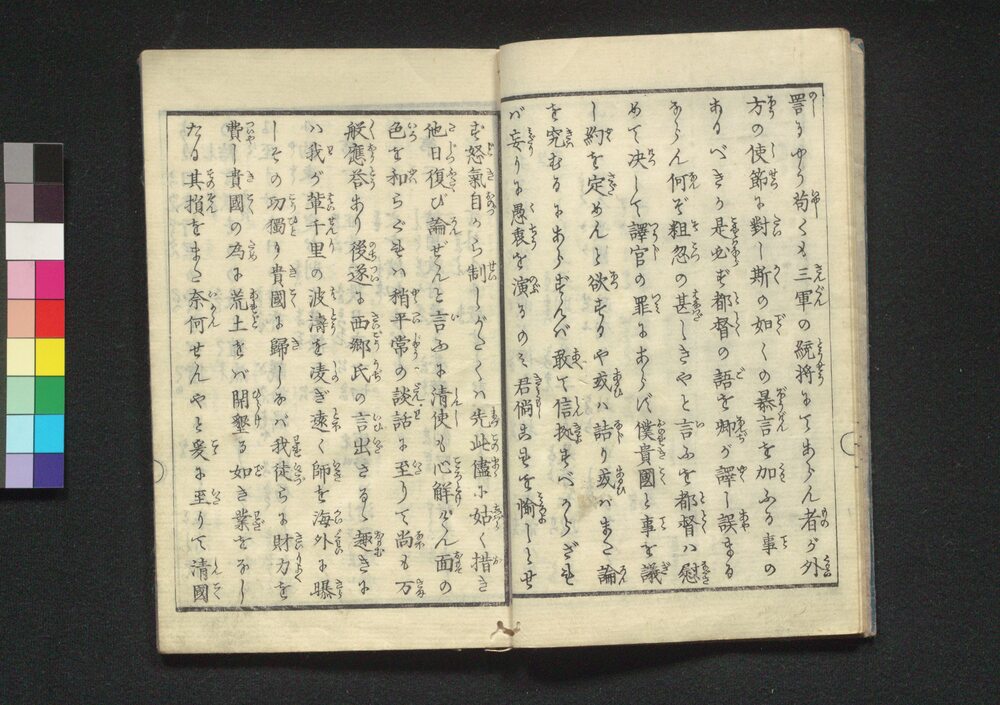 詈るゆゑ苟くも三軍の統将にてあらん者が外
方の使節に對し斯の如くの暴言を加ふる事の
あるべきか是必ず都督の語を卿が譯し誤まる
ならん何ぞ粗忽の甚しきやと言ふを都督ハ慰
めて决して譯官の罪にあらず僕貴國と事を議
し約を定めんと欲するや或ハ詰り或ハまた論
を究むるにあらずんバ敢て信拠すべからざれ
バ妄りに愚衷を演るのミ君倘これを愉しとせ
ず怒氣自から制しがたくハ先此儘に姑く措き
他日復び論ぜんと言ふに清使も心解けん面の
色を和らぐれバ稍平常の談話に至りて尚も万
般應答あり後遂に西郷氏の言出さるゝ趣きに
ハ我が輩千里の波濤を凌ぎ遠く師を海外に曝
しその功獨り貴國に歸しなバ我徒らに財力を
費し貴國の為に荒土をバ開墾る如き業をなし
たる其損をまた奈何せんやと爰に至りて清國